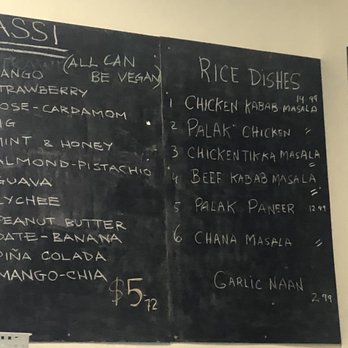 ASSI
(ALL CAN
BE VEGAN)
ANGO
TRAWBERRY
OSE-CARDAMOM
IG
MINT & HONEY
ALMOND-PISTACHIO
GUAVA
LYCHEE
PEANUT BUTTER
DATE-BANANA
PIÑA COLADA
MANGO-CHIA
$5.72
RICE DISHES
1 CHICKEN KABAB MASALA 14.99
2 PALAK CHICKEN "
3 CHICKEN TIKKA MASALA "
4 BEEF KABAB MASALA "
5 PALAK PANEER 12.99
6 CHANA MASALA "
GARLIC NAAN
2.99